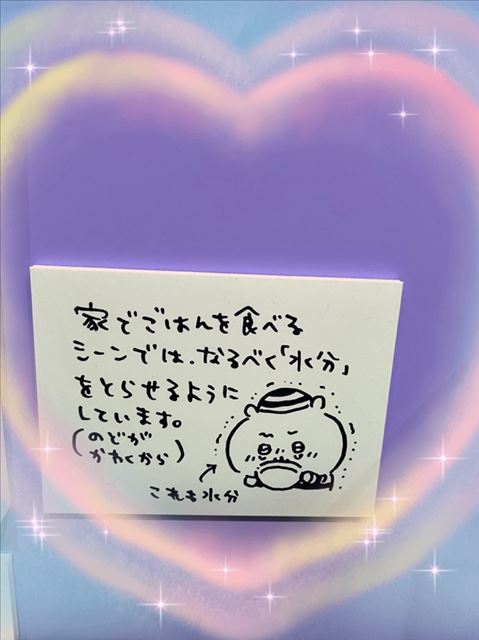 家でごはんを食べる
シーンでは、なるべく「水分」
をとらせるように
しています。
(のどが
かわくから)
これも水分